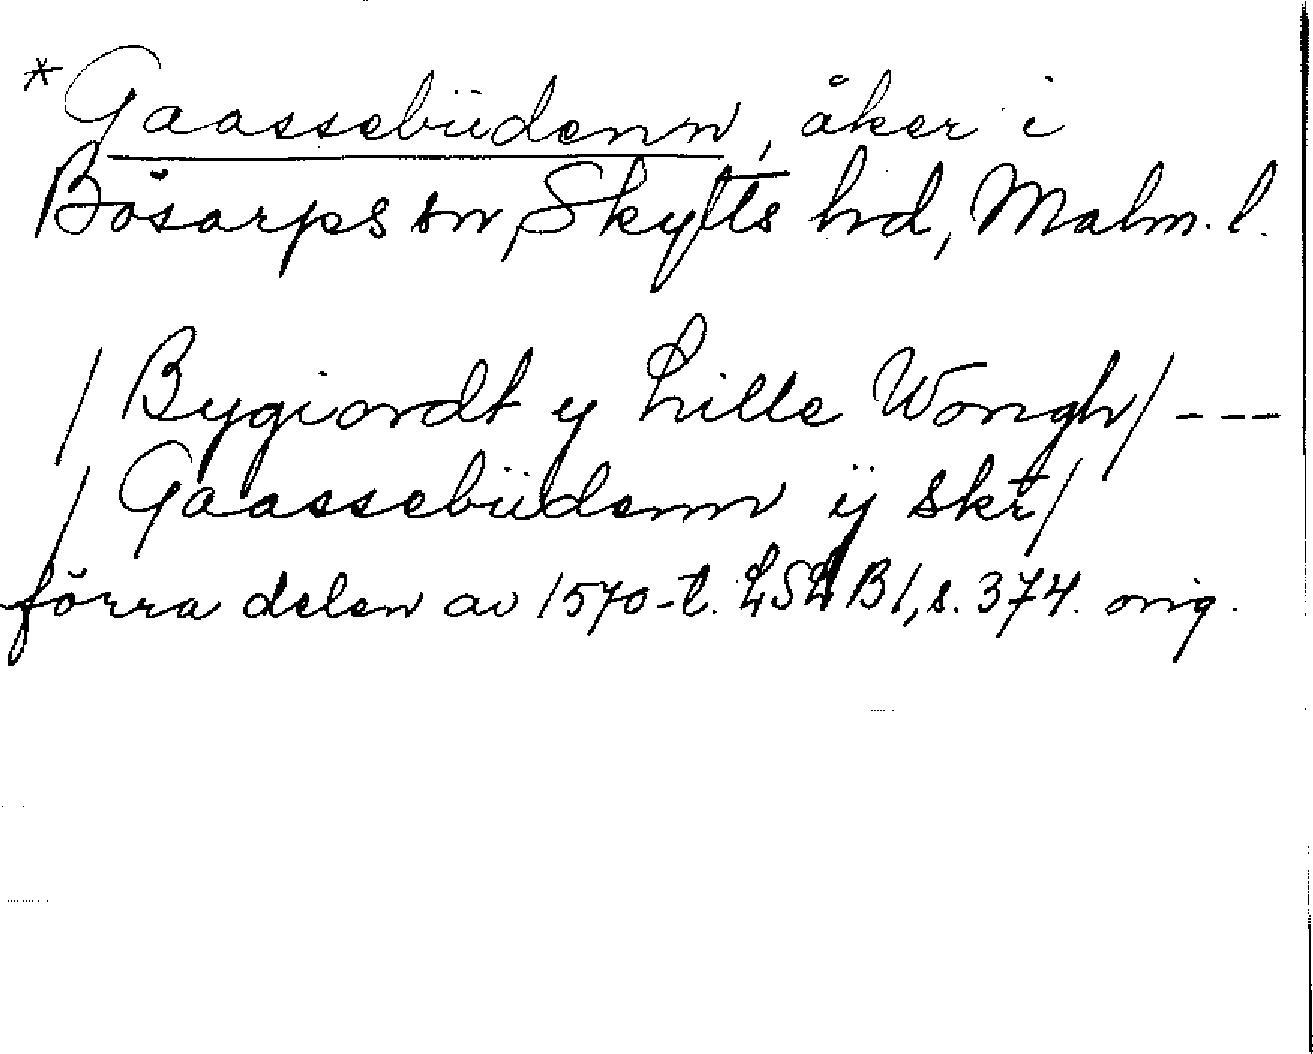 *Gaassebüdenn, åker i
Bösarps sn, Skytts hd, Malm. l.
/ Bygiordt y Lille Wongh/ ---
/ Gaassebüdenn ÿ skt/
förra delen av 1570-t. LSL B1, s. 374. orig.